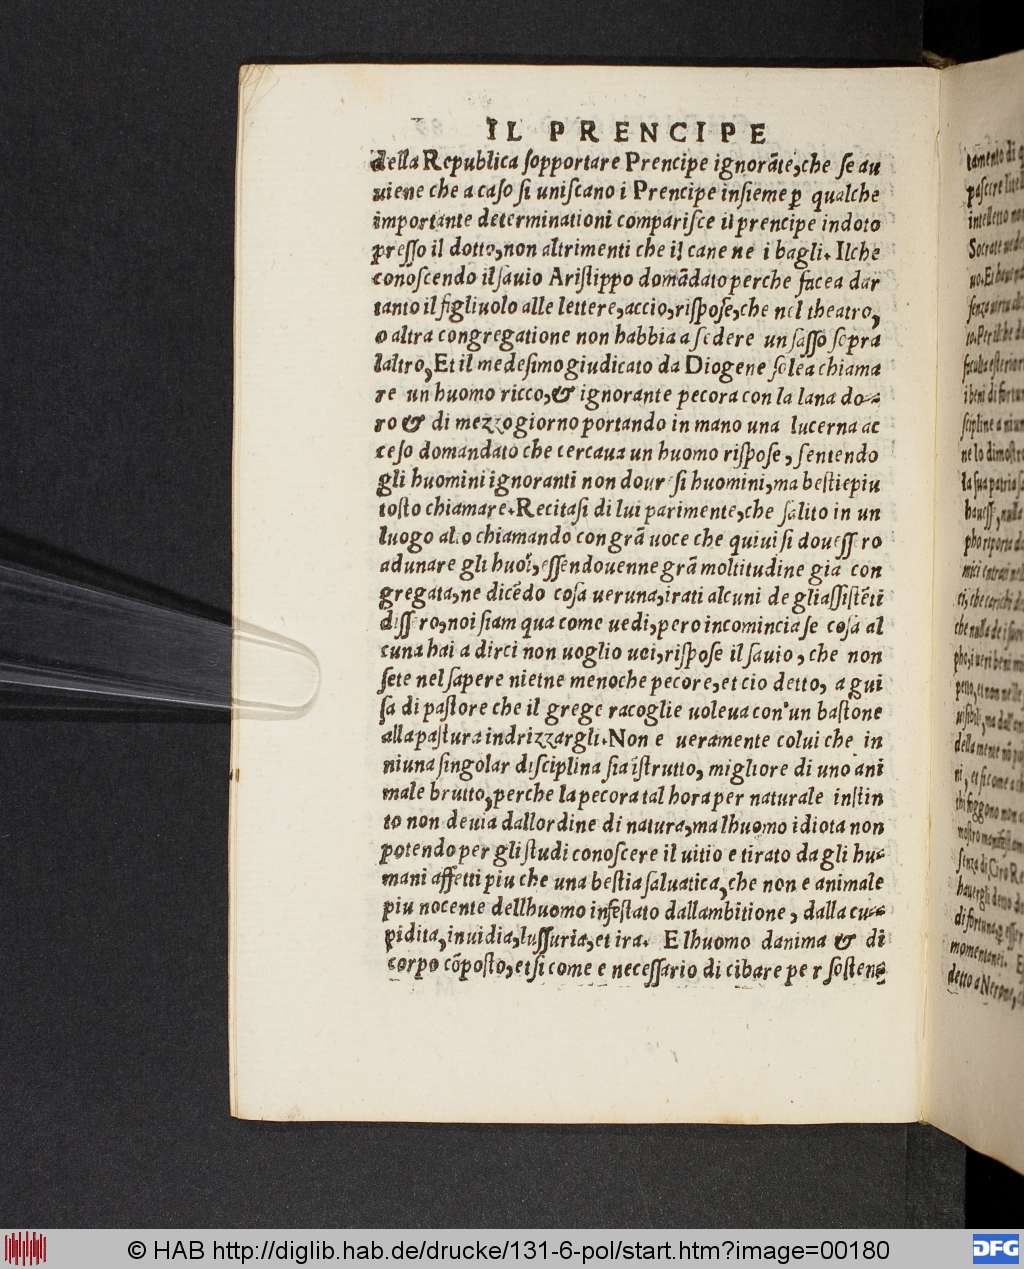 IL PRENCIPE
della Republica sopportare Prencipe ignorãte, che se au
uiene che a caso si uniscano i Prencipe insieme p̱ qualche
importante determinationi comparisce il prencipe indoto
presso il dotto, non altrimenti che il cane ne i bagli. Ilche
conoscendo il sauio Aristippo domãdato perche facea dar
tanto il figliuolo alle lettere, accio, rispose, che nel theatro,
o altra congregatione non habbia a sedere un sasso sopra
laltro, Et il medesimo giudicato da Diogene solea chiama
re un huomo ricco, & ignorante pecora con la lana do-
ro & di mezzo giorno portando in mano una lucerna ac
ceso domandato che cercaua un huomo rispose, sentendo
gli huomini ignoranti non douersi huomini, ma bestie piu
tosto chiamare. Recitasi di lui parimente, che salito in un
luogo alto chiamando con grã uoce che quiui si douessero
adunare gli huoī, essendouenne grã moltitudine gia con
gregata, ne dicẽdo cosa ueruna, irati alcuni de gli assistẽti
dissero, noi siam qua come uedi, pero incomincia se cosa al
cuna hai a dirci non uoglio uoi, rispose il sauio, che non
sete nel sapere nietne meno che pecore, et cio detto, a gui
sa di pastore che il grege racoglie uoleua con un bastone
alla pastura indrizzargli. Non e ueramente colui che in
niuna singolar disciplina sia istrutto, migliore di uno ani
male brutto, perche la pecora tal hora per naturale instin
to non deuia dallordine di natura, ma lhuomo idiota non
potendo per gli studi conoscere il uitio e tirato da gli hu-
mani affetti piu che una bestia saluatica, che non e animale
piu nocente dellhuomo infestato dallambitione, dalla cu-
pidita, inuidia, lussuria, et ira. E lhuomo danima & di
corpo cõposto, et si come e necessario di cibare per sostene
© HAB http://diglib.hab.de/drucke/131-6-pol/start.htm?image=00180
DFG